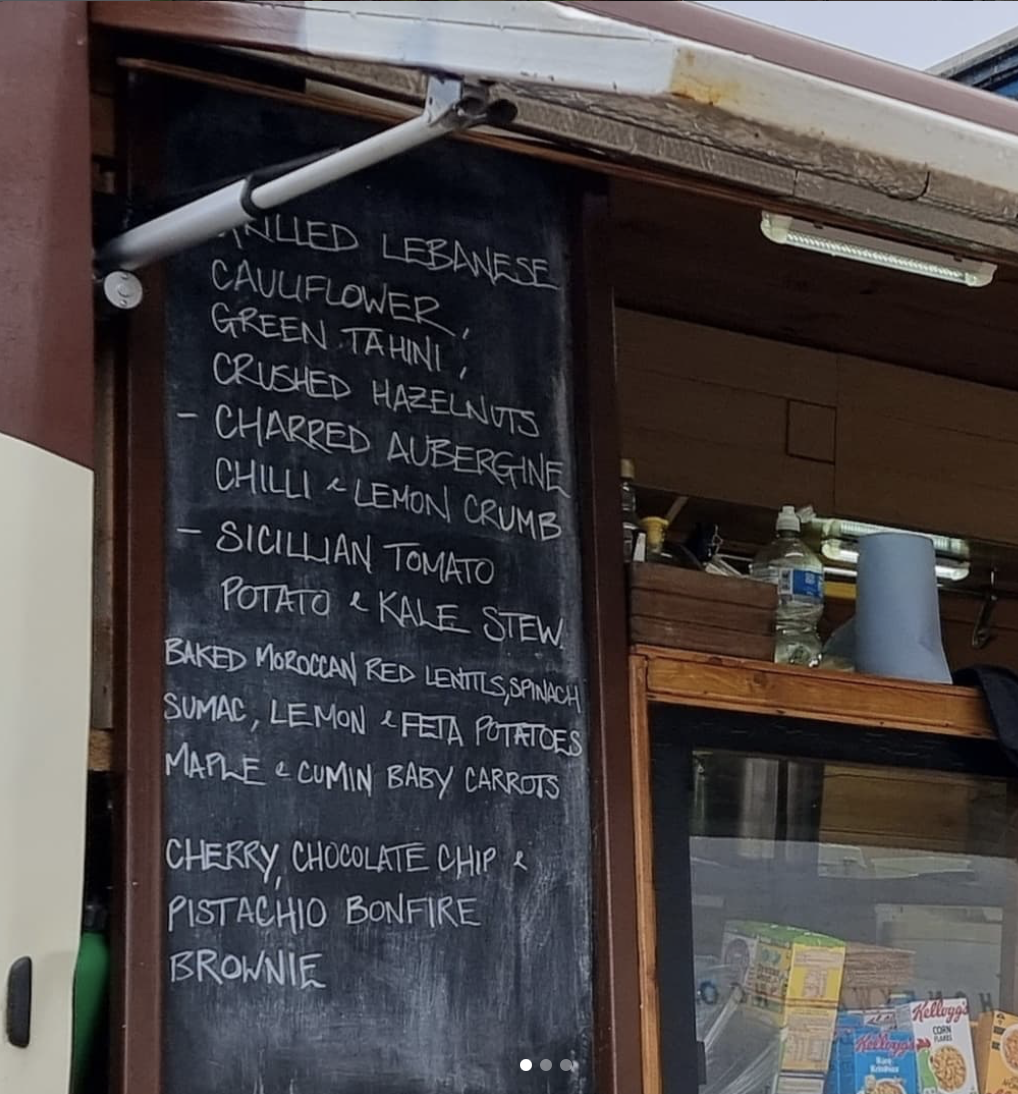 GRILLED LEBANESE
CAULIFLOWER,
GREEN TAHINI,
CRUSHED HAZELNUTS
- CHARRED AUBERGINE
CHILLI & LEMON CRUMB
- SICILLIAN TOMATO
POTATO & KALE STEW
BAKED MOROCCAN RED LENTILS, SPINACH
SUMAC, LEMON & FETA POTATOES
MAPLE & CUMIN BABY CARROTS
CHERRY, CHOCOLATE CHIP &
PISTACHIO BONFIRE
BROWNIE
Kellogg's
CORN
FLAKES
Kellogg's
Rice
Krispies